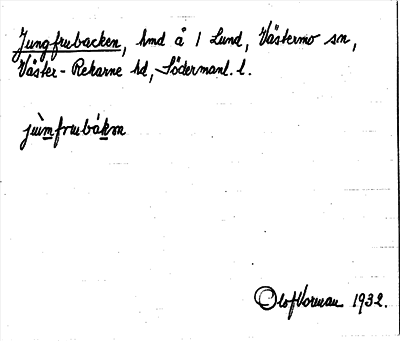 Jungfrubacken, hmd å 1 Lund, Västermo sn,
Väster-Rekarne hd, Södermanl. l.
juìmfrubákən
Olof Vorman 1932.